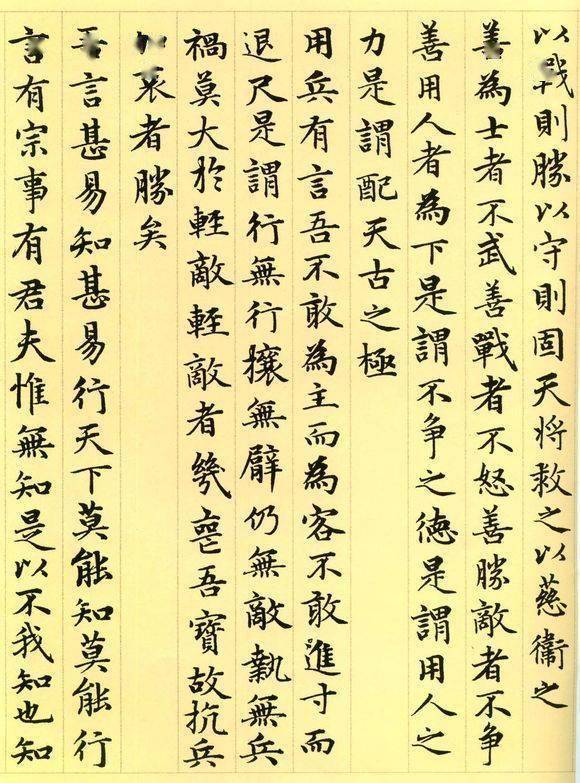 以戰則勝以守則固天將救之以慈衛之
善為士者不武善戰者不怒善勝敵者不争
善用人者為下是謂不争之德是謂用人之
力是謂配天古之極
用兵有言吾不敢為主而為客不敢進寸而
退尺是謂行無行攘無臂仍無敵執無兵
禍莫大於輕敵輕敵者幾喪吾寶故抗兵
哀者勝矣
吾言甚易知甚易行天下莫能知莫能行
言有宗事有君夫惟無知是以不我知也知